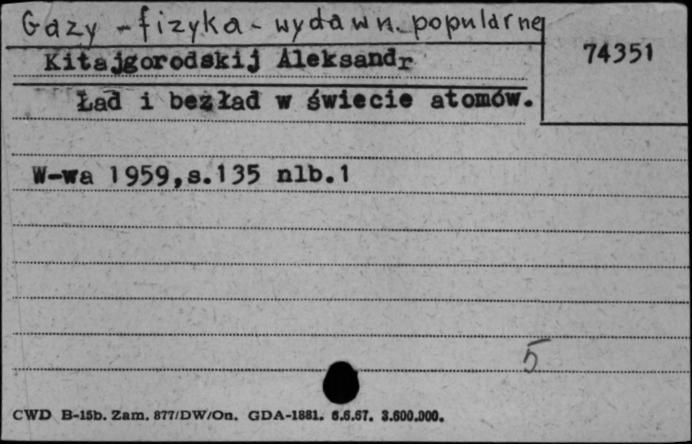 Gazy - fizyka - wydawn. popularne
74351
Kitajgorodskij Aleksandr
Ład i bezład w świecie atomów.
W-wa 1959,s.135 nlb.1
5
CWD B-15b. Zam. 877/DW/On. GDA-1881. 6.6.67. 3.600.000.